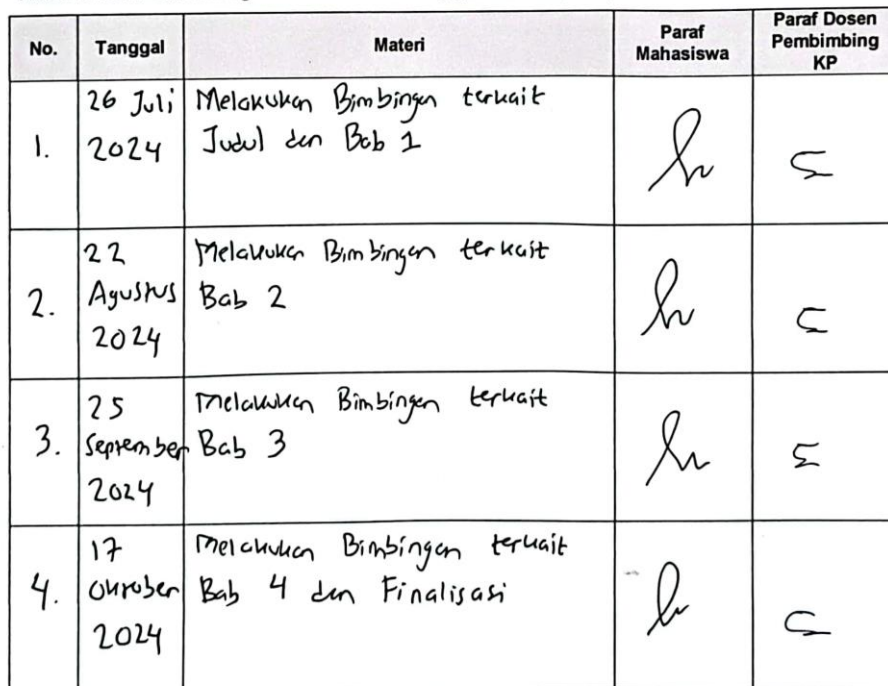 No. Tanggal Materi Paraf Mahasiswa Paraf Dosen Pembimbing KP
1. 26 Juli 2024 Melakukan Bimbingan terkait
Judul dan Bab 1
2. 22 Agustus 2024 Melakukan Bimbingan terkait
Bab 2
3. 25 September 2024 Melakukan Bimbingan terkait
Bab 3
4. 17 Oktober 2024 Melakukan Bimbingan terkait
Bab 4 dan Finalisasi